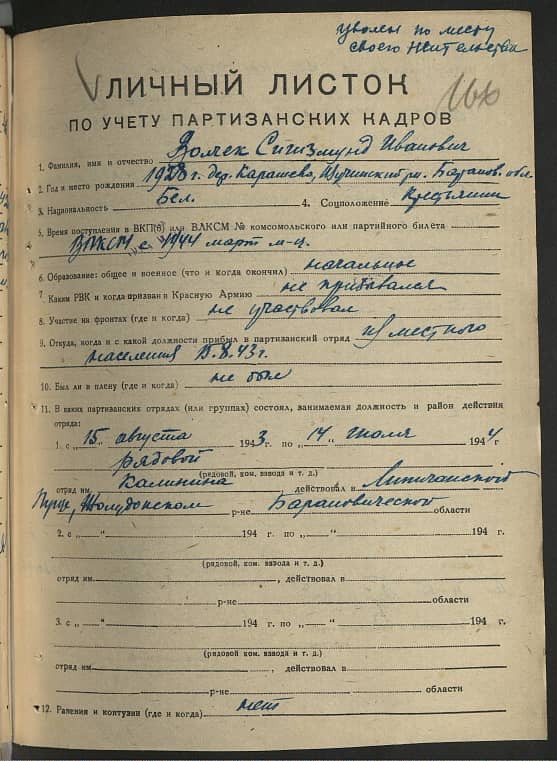 уволен по месту
своего жительства
ЛИЧНЫЙ ЛИСТОК
ПО УЧЕТУ ПАРТИЗАНСКИХ КАДРОВ
1. Фамилия, имя и отчество Волчек Сигизмунд Иванович
2. Год и место рождения 1928 г. дер. Карашево, Щучинский рн. Баранов. обл.
3. Национальность Бел. 4. Соцположение Крестьянин
5. Время поступления в ВКП(б) или ВЛКСМ № комсомольского или партийного билета
ВЛКСМ с 1944 март м-ц.
6. Образование: общее и военное (что и когда окончил) начальное
7. Каким РВК и когда призван в Красную Армию не призывался
8. Участие на фронтах (где и когда) не участвовал
9. Откуда, когда и с какой должности прибыл в партизанский отряд из местного
населения 15.8.43 г.
10. Был ли в плену (где и когда) не был
11. В каких партизанских отрядах (или группах) состоял, занимаемая должность и район действия
отряда:
1. с „15„ августа 1943 г. по „14„ июля 1944 г
рядовой
(рядовой, ком. взвода и т. д.)
отряд им. Калинина действовал в Липичанской
Пуще, Жолудокском р-не Барановической области
2. с „ “ 194 г. по „ “ 194 г.
(рядовой, ком. взвода и т. д.)
отряд им. , действовал в
р-не области
3. с „ “ 194 г. по „ “ 194 г.
(рядовой ком. взвода и т. д.)
отряд им. , действовал в
р-не области
12. Ранения и контузии (где и когда) нет